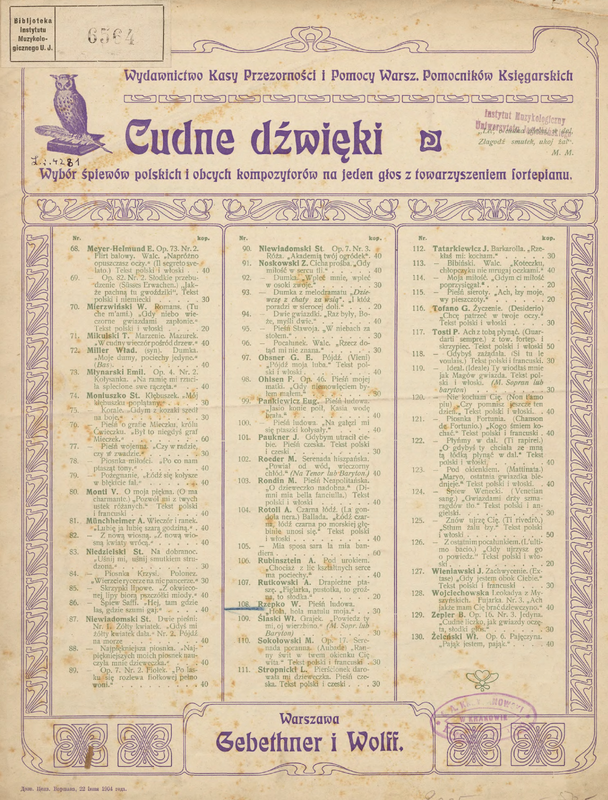 Bibljoteka
Instytutu
Muzykolo-
gicznego U. J.
6564
Wydawnictwo Kasy Przezorności i Pomocy Warsz. Pomocników Księgarskich
Instytut Muzykologiczny
Cudne dźwięki
Złagodź smutek, ukój żal".
M. M.
Wybór śpiewów polskich i obcych kompozytorów na jeden głos z towarzyszeniem fortepianu.
Nr. kop.
68. Meyer-Helmund E. Op. 73. Nr. 2.
Flirt balowy. Walc. „Napróżno
opuszczasz oczy." (Il segreto sve-
lato.) Tekst polski i włoski . 40
69. — Op. 82. Nr. 2. Słodkie przebu-
dzenie. (Süsses Erwachen.) „Jak-
że puciną to gwoździki". Tekst
polski i niemiecki . 30
70. Mierzwiński W. Romans. (Tu
che m'ami.) „Gdy niebo wie-
czorne gwiazdami zapłonie."
Tekst polski i włoski . 20
71. Mikulski T. Marzenie. Mazurek.
„W cudny wieczór pośród drzew." 40
72. Miller Wład. (syn). Dumka.
„Moje dumy, pociechy jedyne."
(Bas) . 40
73. Młynarski Emil. Op. 4. Nr. 2.
Kołysanka. „Na ramię mi rzuci-
ła splecione swe rączęta." . 40
74. Moniuszko St. Kłębuszek.
75. — Kozak. „Gdym z kozaki szedł
na bój."
76. — Pieśń o grafie Mieczker, królu
Czerczeku.
77. — Pieśń wojenna. „Czy w radzie,
czy w zwadzie." . 30
78. — Piosnka miłości. „Po co nam
ptaszą tony" . 40
79. — Pożegnanie. „Łódź się kołysze
w błękicie fal." . 40
80. Monti V. O moja piękna. (O ma
charmante.) „Pozwól mi z twych
ustek różanych." Tekst polski
i francuski . 30
81. Münchheimer A. Wieczór i ranek.
„Lubię ja lubię szarą godzinę." 40
82. — Z nową wiosną. „Z nową wio-
sną kwiaty wrócą." . 40
83. Niedzielski St. Na dobranoc.
„Uśnij mi, uśnij smutkiem stru-
dzona." . 30
84. — Piosnka Krzysi. Polonez.
„W kreście rycerze nic pancerze." 30
85. — Skrzypki Ipowe. „Z okwieco-
nej lipy biorą pszczółki miody." 40
86. — Śpiew Saffi. „Hej, tam gdzieś
lud, gdzie szumi gaj." . 40
87. Niewiadomski St. Dwie pieśni.
Nr. 1. Żółty kwiatek. „Gdyś mi
żółty kwiatek dała." Nr. 2. Pójdź
na zmrok . 40
88. — Najpiękniejsza piosnka. „Naj-
piękniejszych moich piosnek nau-
czyła mnie dziewczeczka." . 40
89. — Op. 7. Nr. 2. Fiołek. „Po las-
ku się rozlewa fiołkowej pełno
woni." . 40
Nr. kop.
90. Niewiadomski St. Op. 7. Nr. 3.
Róża. „Akademią twój ogródek" 40
91. Noskowski Z. Cicha prośba. „Gdy
miłość w sercu tli." . 40
92. — Dumka. „Wplet mnie, wpleć
w osoki zwoje." . 30
93. — Dumka z melodramatu „Dziew-
czę z chaty za wsią". „I któż
poradzi w sierocej doli." . 20
94. — Dwie gwiazdki. „Raz były, Bo-
że, myśli dwie." . 40
95. — Pieśń Stawoja. „W niebach za
stołem." . 30
96. — Pocałunek. Walc. „Rzecz do-
tąd mi nie znana." . 30
97. Obsner G. E. Pójdź. (Vieni)
„Pójdź moja luba." Tekst pol-
ski i włoski . 30
98. Ohlsen F. Op. 46. Pieśń mojej
matki. „Gdy niemowlęciem by-
łem małem." . 30
99. Pankiewicz Eug. Pieśń ludowa.
„Jasio konie poił, Kasia wodę
brała." . 40
100. — Pieśń ludowa. „Na gałęzi mi
się ptaszki kołysały." . 40
101. Paukner J. Gdybym utracił cie-
bie. Pieśń czeska. Tekst polski
i czeski . 30
102. Roeder M. Serenada hiszpańska.
„Powiał od wód, wieczorny
chłód." (Na Tenor lub Baryton.) 40
103. Rondin M. Pieśń Neapolitańska.
„O dzieweczko nadobna." (Di-
mmi mia bella fanciulla.) Tekst
polski i włoski . 30
104. Rotoli A. Czarna łódź. (La gon-
dola nera.) Ballada. „Łódź czar-
na, łódź czarna po morskiej głę-
binie unosi się." Tekst polski
i włoski . 40
105. — Mia sposa sara la mia ban-
diera . 60
106. Rubinsztein A. Pod urokiem.
„Chociaż z lic kształtnych serce
ma pociechy." . 30
107. Rutkowski A. Drapieżne pta-
szę. „Figlarka, pustotka, to groź-
na, to słodka." . 20
108. Rzepko W. Pieśń ludowa.
„Hola, hola matulu moja." . 30
109. Slaski Wł. Grajek. „Powiedz ty
mi, oj wierzbino." (M. Sopr. lub
Baryton) . 30
110. Sokołowski M. Op. 17. Sere-
nada poranna. (Aubade.) „Ran-
ny świt w twem okienku Cię
wita." Tekst polski i francuski . 30
111. Stropnicki L. Pierścionek daro-
wała mi dzieweczka. Pieśń cze-
ska. Tekst polski i czeski . 30
Nr. kop.
112. Tatarkiewicz J. Barkarolla. „Rze-
kłaś mi: kocham." . 30
113. — Bibiński. Walc. „Koteczku,
chłopczyku nie mrugaj oczkami." 40
114. — Moja miłość. „Gdym ci miłość
poprzysięgał." . 20
115. — Pieśń sieroty. „Ach, łzy moje,
wy pieszczoty." . 20
116. Tofano G. Życzenie. (Desiderio)
„Chcę patrzeć w twoje oczy."
Tekst polski i włoski . 40
117. Tosti P. Ach z tobą płynąć. (Guar-
darti sempre.) z tow. fortep. i
skrzypiec. Tekst polski i włoski 50
118. — Gdybyś zażądała. (Si tu le
voulais.) Tekst polski i francuski. 30
119. — Ideał. (Ideale) Ty wiodłaś mnie
jak Magów gwiazda. Tekst pol-
ski i włoski. (M. Sopran lub
baryton) . 30
120. — Nie kocham Cię. (Non t'amo
più) „Czy pomnisz jeszcze ten
dzień." Tekst polski i włoski . 40
121. — Piosnka Fortunia. (Chanson
de Fortunio.) „Kogo śmiem ko-
chać." Tekst polski i francuski . 40
122. — Płyńmy w dal. (Ti rapirei.)
„O gdybyś ty chciała ze mną
tą łódką płynąć w dal." Tekst
polski i włoski . 40
123. — Pod okienkiem. (Mattinata.)
„Maryo, ostatnia gwiazdka ble-
dnieje." Tekst polski i włoski . 40
124. — Śpiew Wenecki. (Venetian
sang.) „Gwiazdami drży szma-
ragdów tło." Tekst polski i an-
gielski . 30
125. — Znów ujrzę Cię. (Ti rivedrò.)
„Szum fali by." Tekst polski
i włoski . 50
126. — Z ostatnim pocałunkiem. (L'ulti-
mo bacio.) „Gdy ujrzysz go
o powiedz." Tekst polski i wło-
ski . 20
127. Wieniawski J. Zachwycenie. (Ex-
tase) „Gdy jestem obok Ciebie."
Tekst polski i francuski . 30
128. Wojciechowska Leokadya z Ma-
ryańskich. Futarka. Nr. 3. „Ach
jakże mam Cię brać dziewczyno." 40
129. Zepler B. Op. 16. Nr. 3. Jodyna.
„Cudne liczko, jak gwiazdy oczę-
ta, słodki głos." . 40
130. Żeleński Wł. Op. 6. Pajęczyna.
„Pająk jestem, pająk." . 40
Warszawa
Gebethner i Wolff.
W KRAKOWIE
Дозв. Ценз. Варшава, 22 Іюня 1904 года.